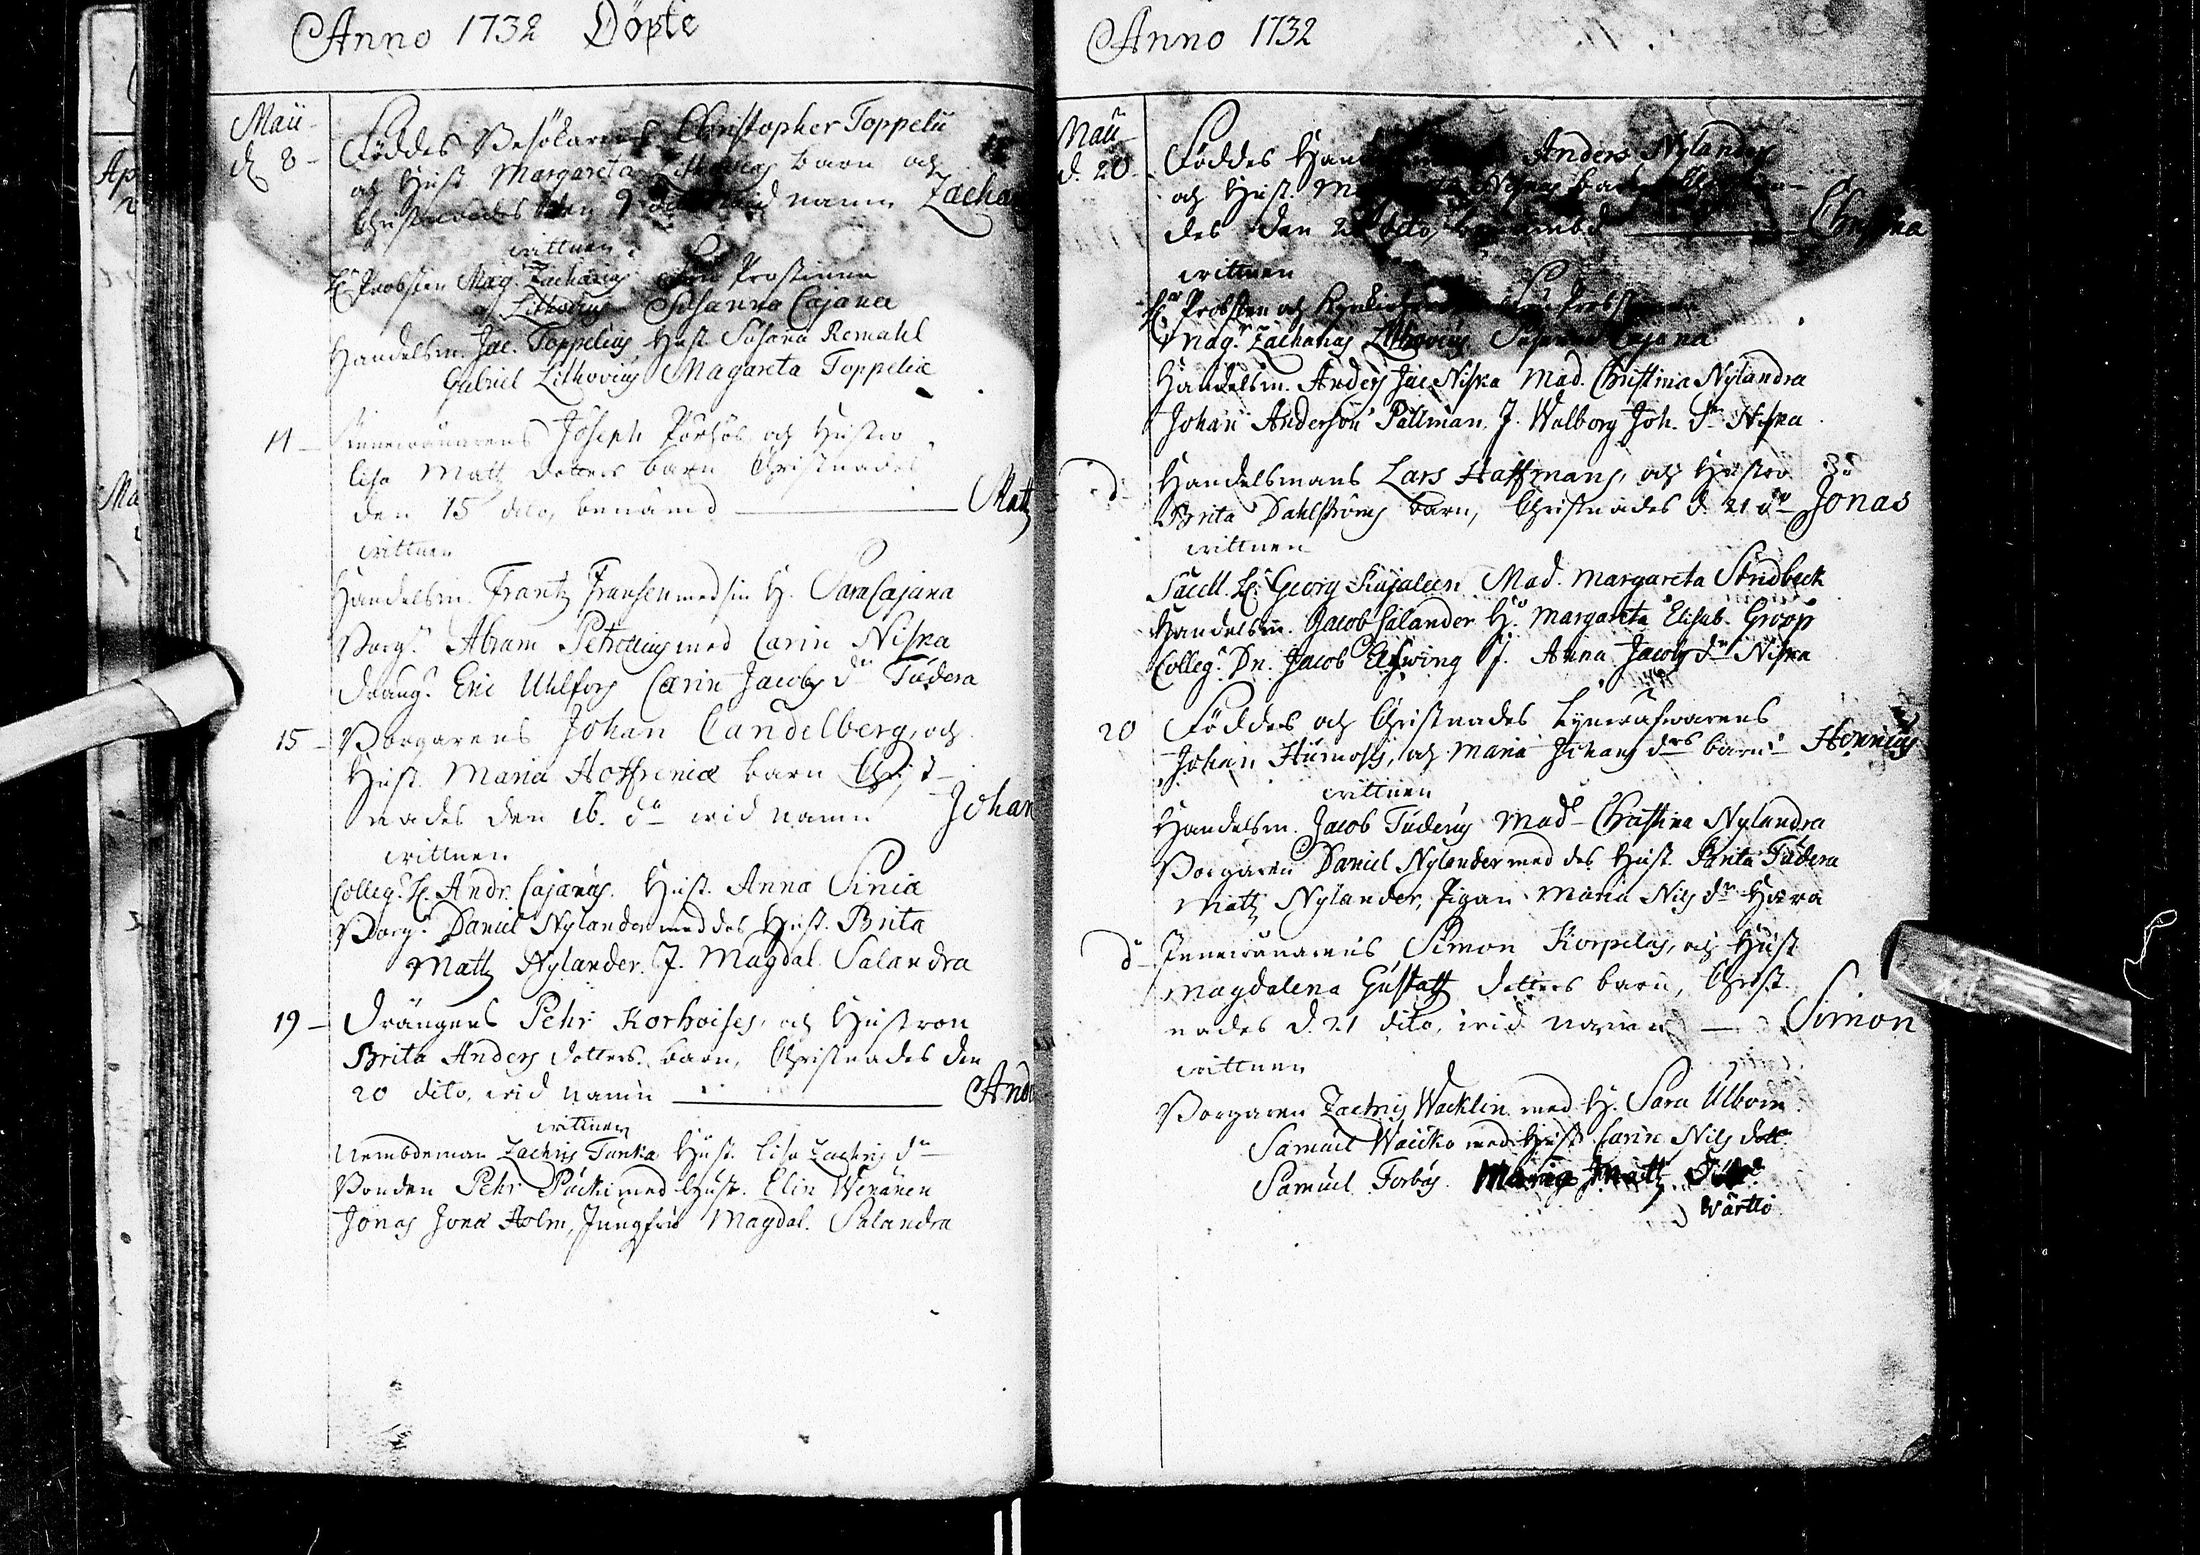 Anno 1732 Döpte
Maii
d. 8 -
Föddes Besökarens Christopher Toppelii
och Hust. Margareta Lithovius barn och
Christnades den 9 wid namn Zacha
wittnen
H. Probsten Mag. Zacharias Fru Prostinnan
Lithovius Susanna Cajana
Handelsm. Jac. Toppelius Hust Susana Remahl
Gabriel Lithovius Magareta Toppelia
14 - Innewånarens Joseph och Hustro
Lisa Matz dotters barn Christnades
den 15 dito, benämd Matz
wittnen
Handelsm. Frantz Fransen med sin H. Sara Cajana
Borg. Abram Petrellius med Carin Niska
Dräng. Eric Uhlfors Carin Jacobs dr Tudera
15 - Borgarens Johan Candelberg, och
Hust. Maria Hothrenia barn Christ-
nades den 16. do wid namn Johan
wittnen
Colleg. H. Andr. Cajanus. Hust. Anna Sinia
Borg. Daniel Nylander med des Hust. Brita
Matz Nylander. J. Magdal. Salandra
19 - Drängens Pehr Korhoises, och Hustron
Brita Anders dotters barn, Christnades den
20 dito, wid namn And
wittnen
Nembdeman Zachris Tanka Hust. Lisa Zachris dr
Bonden Pehr Päcki med Hust. Elin Wenänen
Jonas Jona Holm, Jungfru Magdal. Salandra
Anno 1732
Maii
d. 20
Föddes Hand Anders Nylanders
och Hust. barn
des den dito, benämbd Christina
wittnen
H. Probsten och Kyrkioherden Probstinnan
Mag. Zacharias Lithovius Susanna Cajana
Handelsm. Anders Jac. Niska Mad. Christina Nylandra
Johan Anderson Pallman, J. Walborg Joh. dr Niska
do Handelsmans Lars Haffmans, och Hustro
Brita Dahlströms barn, Christnades d. 21 do Jonas
wittnen
Sacell. H. Georg Kajaleen Mad. Margareta Stridbeck
Handelsm. Jacob Salander H. Margareta Elisab. Groop
Colleg. Dn. Jacob Elfwing J. Anna Jacobs dr Niska
20 Föddes och Christnades
Johan och Maria Johans drs barn Henricus
wittnen
Handelsm. Jacob Tuderus Mad. Christina Nylandra
Borgaren Daniel Nylander med des Hust. Brita Tudera
Matz Nylander, Pigan Maria Nils dr Hæra
do Innewånarens Simon Korpelas, och Hust
Magdalena Gustafs dotters barn, Christ-
nades d. 21 dito, wid namn Simon
wittnen
Borgaren Zachris Wacklin med H. Sara Ulbom
Samuel Waicko med Hust. Carin Nils dott.
Samuel Forbus. Maria Matz
Wärtto